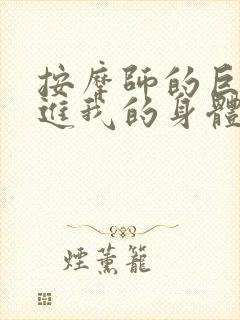 按摩師的巨
進我的身體
煙薰籠